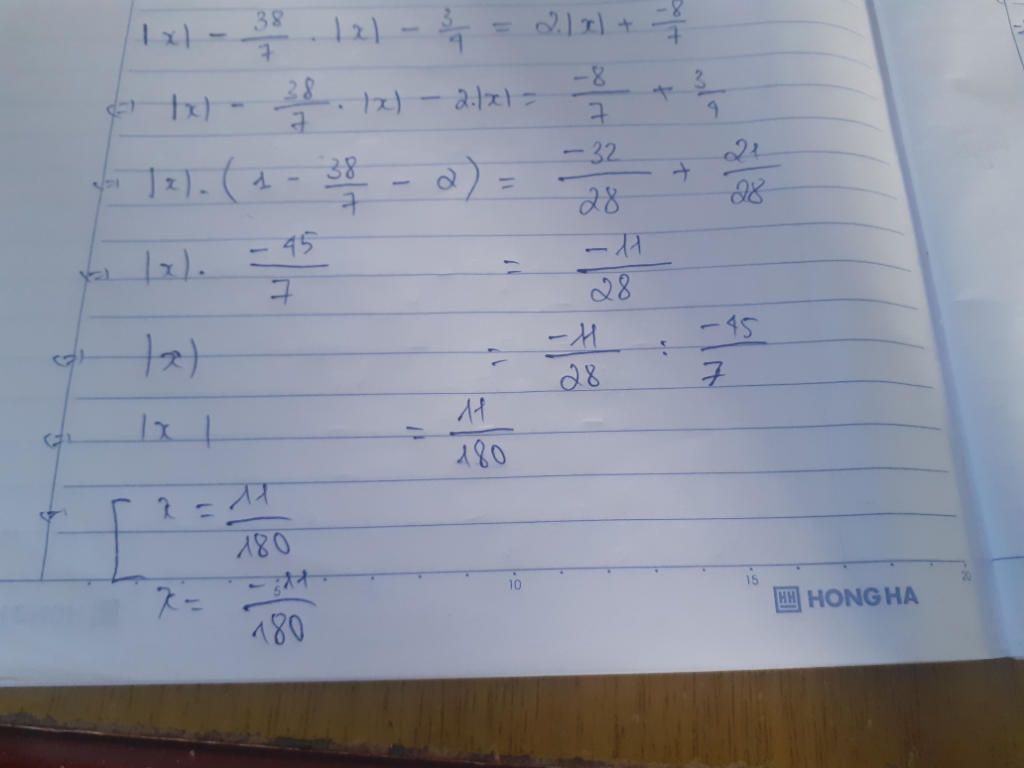 |x| - 38/7 . |x| - 3/4 = 2.|x| + -8/7
⇔ |x| - 38/7 . |x| - 2.|x| = -8/7 + 3/4
⇔ |x| . ( 1 - 38/7 - 2 ) = -32/28 + 21/28
⇔ |x| . -45/7 = -11/28
⇔ |x| = -11/28 : -45/7
⇔ |x| = 11/180
⇔ [ x = 11/180
x = -11/180
5 10 15 20
HONG HA